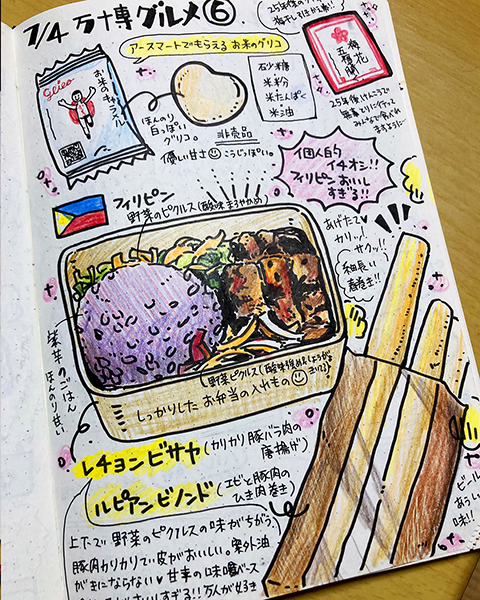 7/4 万博グルメ⑥
アースマートでもらえる お米のグリコ
glico
お米のキャラメル
ほんのり
白っぽい
グリコ。
非売品
優しい甘さ こうじっぽい。
砂糖
米粉
米たんぱく
米油
梅花
五福蘭
25年後けんこうで
みんなで食べれ
ますように
個人的
イチオシ!!
フィリピンおいし
すぎる!!
フィリピン
野菜のピクルス(酸味まろやかめ)
あげたて
カリッ!
サクッ!!
細長い
春巻き!!
紫芋のごはん
ほんのり甘い
野菜ピクルス(酸味強め
しっかりした お弁当の入れもの
レチョンビサヤ(カリカリ豚バラ肉の
唐揚げ)
ルピアンビノンド(エビと豚肉の
ひき肉巻き)
ビール
あうし
味!!
上下で 野菜のピクルスの味がちがう。
豚肉カリカリで皮がおいしい。案外油
がきにならない 甘辛の味噌ベース
すぎる!!万人が好き